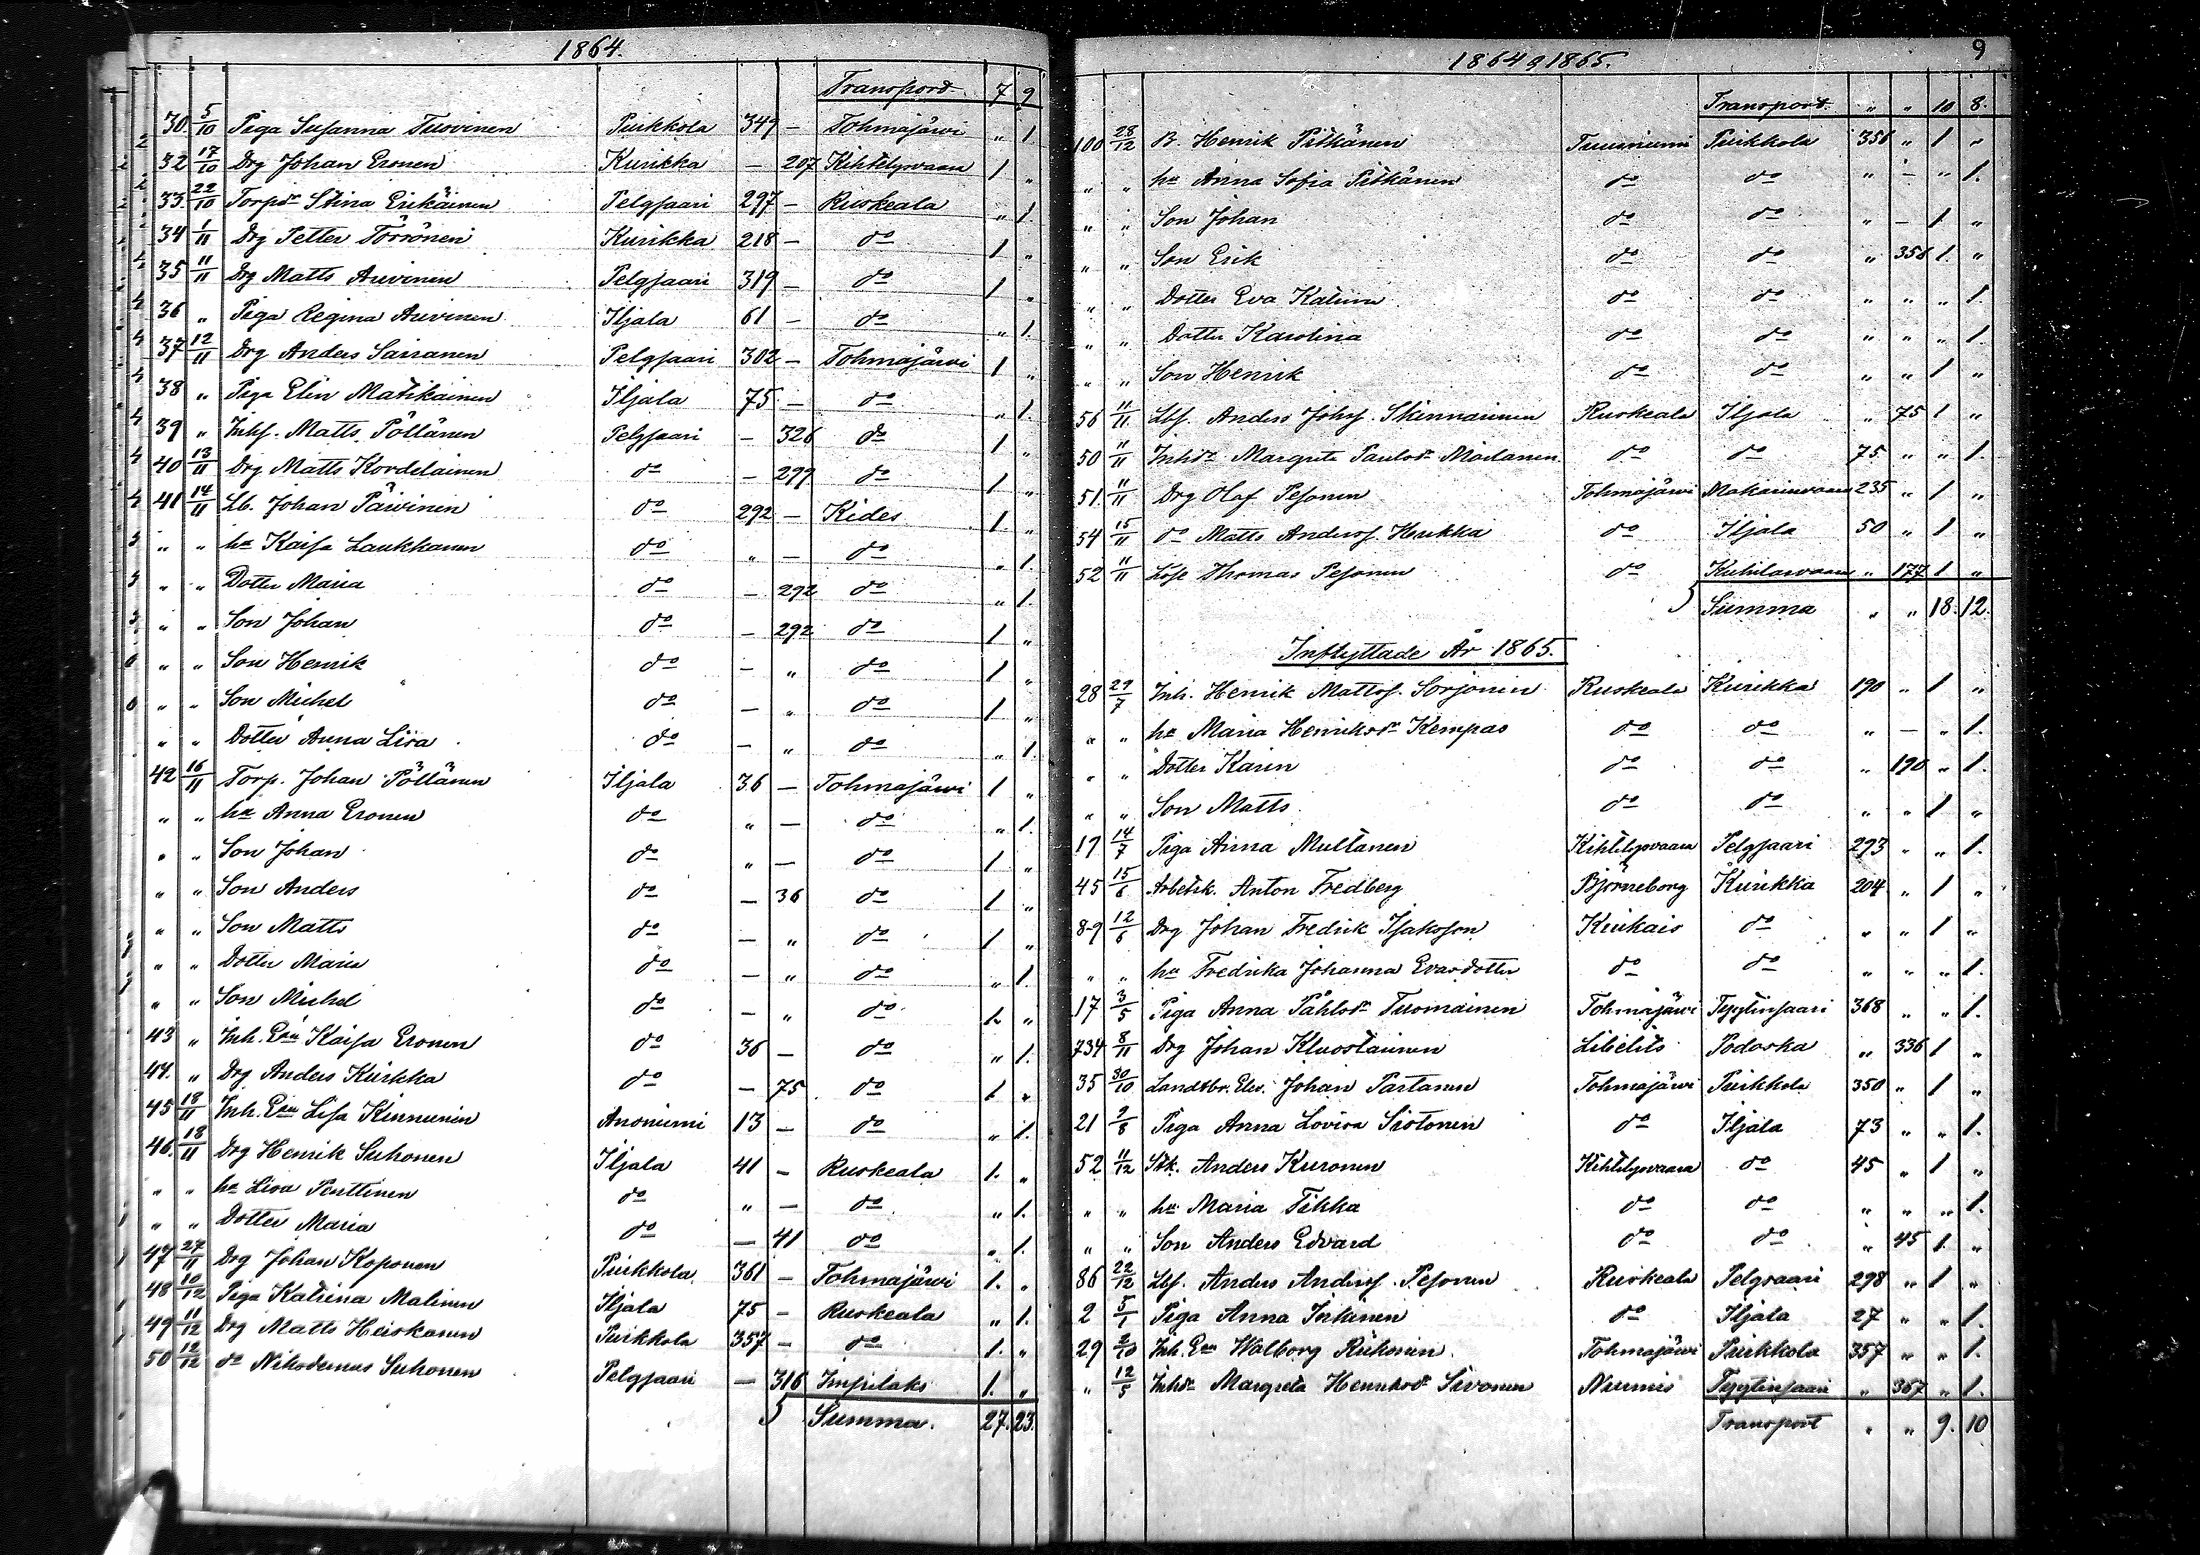 1864.
Transport 7 9
30. 5/10 Piga Susanna Tuovinen Puikkola 349 — Tohmajärvi „ 1.
32 17/10 Drg Johan Eronen Kurikka — 207 Kihtelysvaara 1 „
33. 22/10 Torpdr Stina Erikäinen Pelgjaari 297 — Ruskeala „ 1.
34 1/11 Drg Petter Törrönen Kurikka 218 — do 1 „
35 11/11 Drg Matts Auvinen Pelgjaari 319 — do 1 „
36 „ Piga Regina Auvinen Iljala 61 — do „ 1.
37 12/11 Drg Anders Sairanen Pelgjaari 302 — Tohmajärvi 1 „
38 „ Piga Elin Matikainen Iljala 75 — do „ 1.
39 „ Inhs. Matts Pöllänen Pelgjaari — 326 do 1 „
40 13/11 Drg Matts Kordelainen do — 299 do 1 „
41 14/11 Lb. Johan Päivinen do 292 — Kides 1. „
„ „ hu Kaisa Laukkanen do „ — do „ 1.
„ „ Dotter Maria do — 292 do „ 1.
„ „ Son Johan do — 292 do 1 „
„ „ Son Henrik do — „ do 1 „
„ „ Son Michel do — „ do 1 „
„ „ Dotter Anna Lisa do — „ do „ 1.
42 16/11 Torp. Johan Pöllänen Iljala 36 — Tohmajärvi 1 „
„ „ hu Anna Eronen do „ — do „ 1.
„ „ Son Johan do „ — do 1 „
„ „ Son Anders do — 36 do 1 „
„ „ Son Matts do — „ do 1 „
„ „ Dotter Maria do — „ do „ 1.
„ „ Son Michel do — „ do 1. „
43 „ Inh. Enk Kaisa Eronen do 36 — do „ 1.
44. „ Drg Anders Kurkka do — 75 do 1 „
45 18/11 Inh. Enk Lisa Kinnunen Anoniemi 13 — do „ 1.
46. 18/11 Drg Henrik Suhonen Iljala 41 — Ruskeala 1. „
„ „ hu Lisa Penttinen do „ — do „ 1.
„ „ Dotter Maria do — 41 do „ 1.
47 27/11 Drg Johan Koponen Puikkola 361 — Tohmajärvi 1. „
48 10/12 Piga Katrina Malinen Iljala 75 — Ruskeala „ 1.
49 11/12 Drg Matts Heiskanen Puikkola 357 — do 1. „
50 12/12 do Nikodemus Suhonen Pelgjaari — 316 Impilaks 1. „
Summa. 27. 23.
1864 & 1865. 9
Transport „ „ 10 8.
100 28/12 B. Henrik Pitkänen Puikkola 356 „ 1 „
„ „ hu Anna Sofia Pitkänen do do „ — „ 1.
„ „ Son Johan do do „ — 1 „
„ „ Son Erik do do „ 356 1. „
„ „ Dotter Eva Katrina do do „ „ „ 1.
„ „ Dotter Karolina do do „ „ „ 1.
„ „ Son Henrik do do „ „ 1 „
56 11/11 Lbs. Anders Johss. Skinnarinen Ruskeala Iljala „ 75 1 „
50 11/11 Inhdr Margreta Paulsdr Moilanen do do 75. „ „ 1.
51. 11/11 Drg Olaf Pesonen Tohmajärvi Makarinvaara 235 „ 1 „
54 15/11 do Matts Anderss. Hukka do Iljala 50 „ 1 „
52 11/11 Loss Thomas Pesonen do „ 177 1 „
Summa „ „ 18. 12.
Inflyttade År 1865.
28 29/7 Inh. Henrik Mattss. Sorjonen Ruskeala Kurikka 190 „ 1 „
„ „ hu Maria Henriksdr Kempas do do „ — „ 1.
„ „ Dotter Karin do do „ 190 „ 1.
„ „ Son Matts do do „ „ 1 „
19 14/7 Piga Anna Multanen Kihtelysvaara Pelgjaari 293 „ „ 1.
45 15/6 Arbetsk. Anton Fredberg Björneborg Kurikka 204 „ 1 „
89 12/6 Drg Johan Fredrik Isaksson Kiukais do „ „ 1 „
„ „ hu Fredrika Johanna Evasdotter do do „ „ „ 1.
17 3/5 Piga Anna Påhlsdr Tuomainen Tohmajärvi Tyytinsaari 368 „ „ 1.
734 8/11 Drg Johan Kluostainen Libelits Podoska „ 336 1 „
35 30/10 Landtbr. Elev. Johan Partanen Tohmajärvi Puikkola 350 „ 1 „
21 2/8 Piga Anna Lovisa Siotonen do Iljala 73 „ „ 1.
52 11/12 Stk. Anders Kuronen Kihtelysvaara do 45 „ 1 „
„ „ hu Maria Tikka do do „ „ „ 1.
„ „ Son Anders Edvard do do „ 45 1. „
86 22/12 Lbs. Anders Anderss. Pesonen Ruskeala Pelgsaari 298 „ 1 „
2 5/1 Piga Anna Inkinen do Iljala 27 „ „ 1.
29 2/10 Inh. Enk Walborg Riikonen Tohmajärvi Puikkola 357 „ „ 1.
„ 12/5 Inhdr Margreta Henriksdr Sivonen Nurmis Tyytinsaari „ 367 „ 1.
Transport „ „ 9. 10